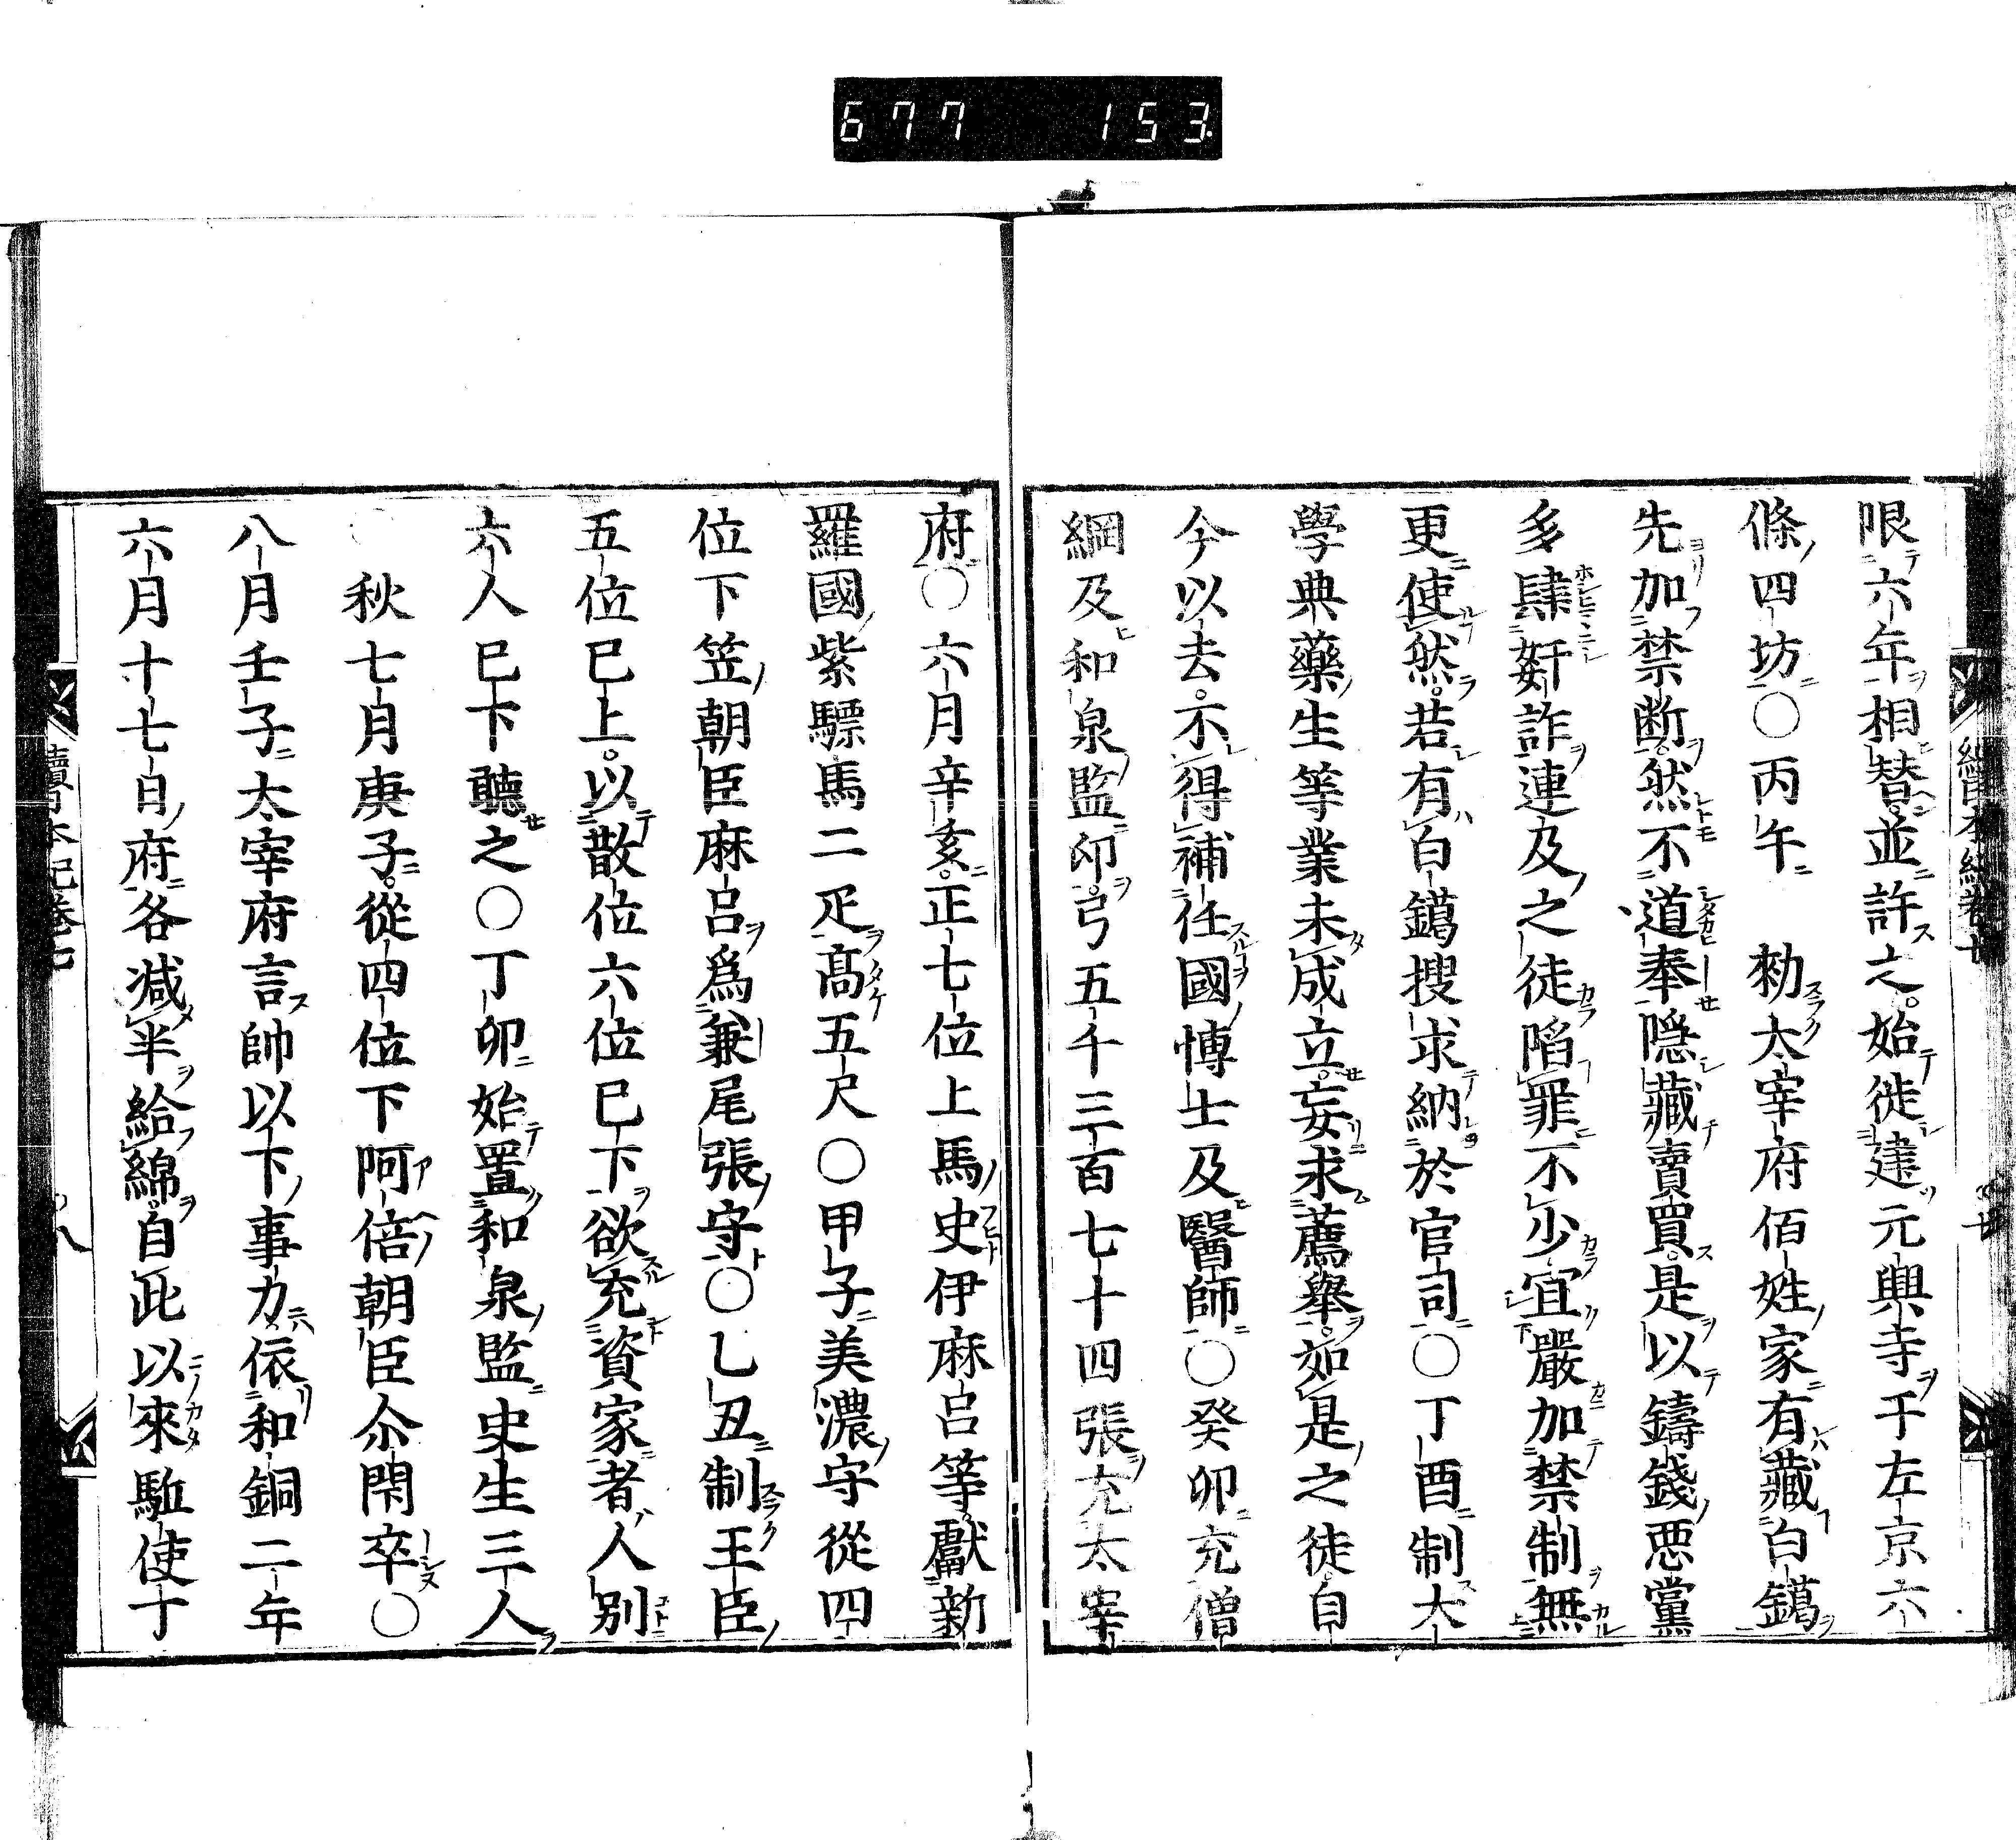 677 153
限六年相替並許之始徙建元興寺于左京六
條四坊〇丙午 勑太宰府佰姓家有藏白鑞
先加禁断然不道奉隠藏賣買是以鑄錢悪黨
多肆奸詐連及之徒陥罪不少宜嚴加禁制無
更使然若有白鑞捜求納於官司〇丁酉制大
學典藥生等業未成立妄求薦舉如是之徒自
今以去不得補任國博士及醫師〇癸卯充僧
綱及和泉監印弓五千三百七十四張充太宰
府〇六月辛亥正七位上馬史伊麻呂等獻新
羅國紫驃馬二疋髙五尺〇甲子美濃守從四
位下笠朝臣麻呂爲兼尾張守〇乙丑制王臣
五位已上以散位六位已下欲充資家者人別
六人已下聽之〇丁卯始置和泉監史生三人
〇秋七月庚子從四位下阿倍朝臣尒閇卒〇
八月壬子太宰府言帥以下事力依和銅二年
六月十七日府各減半給綿自此以來駈使丁
續日本紀卷七
八